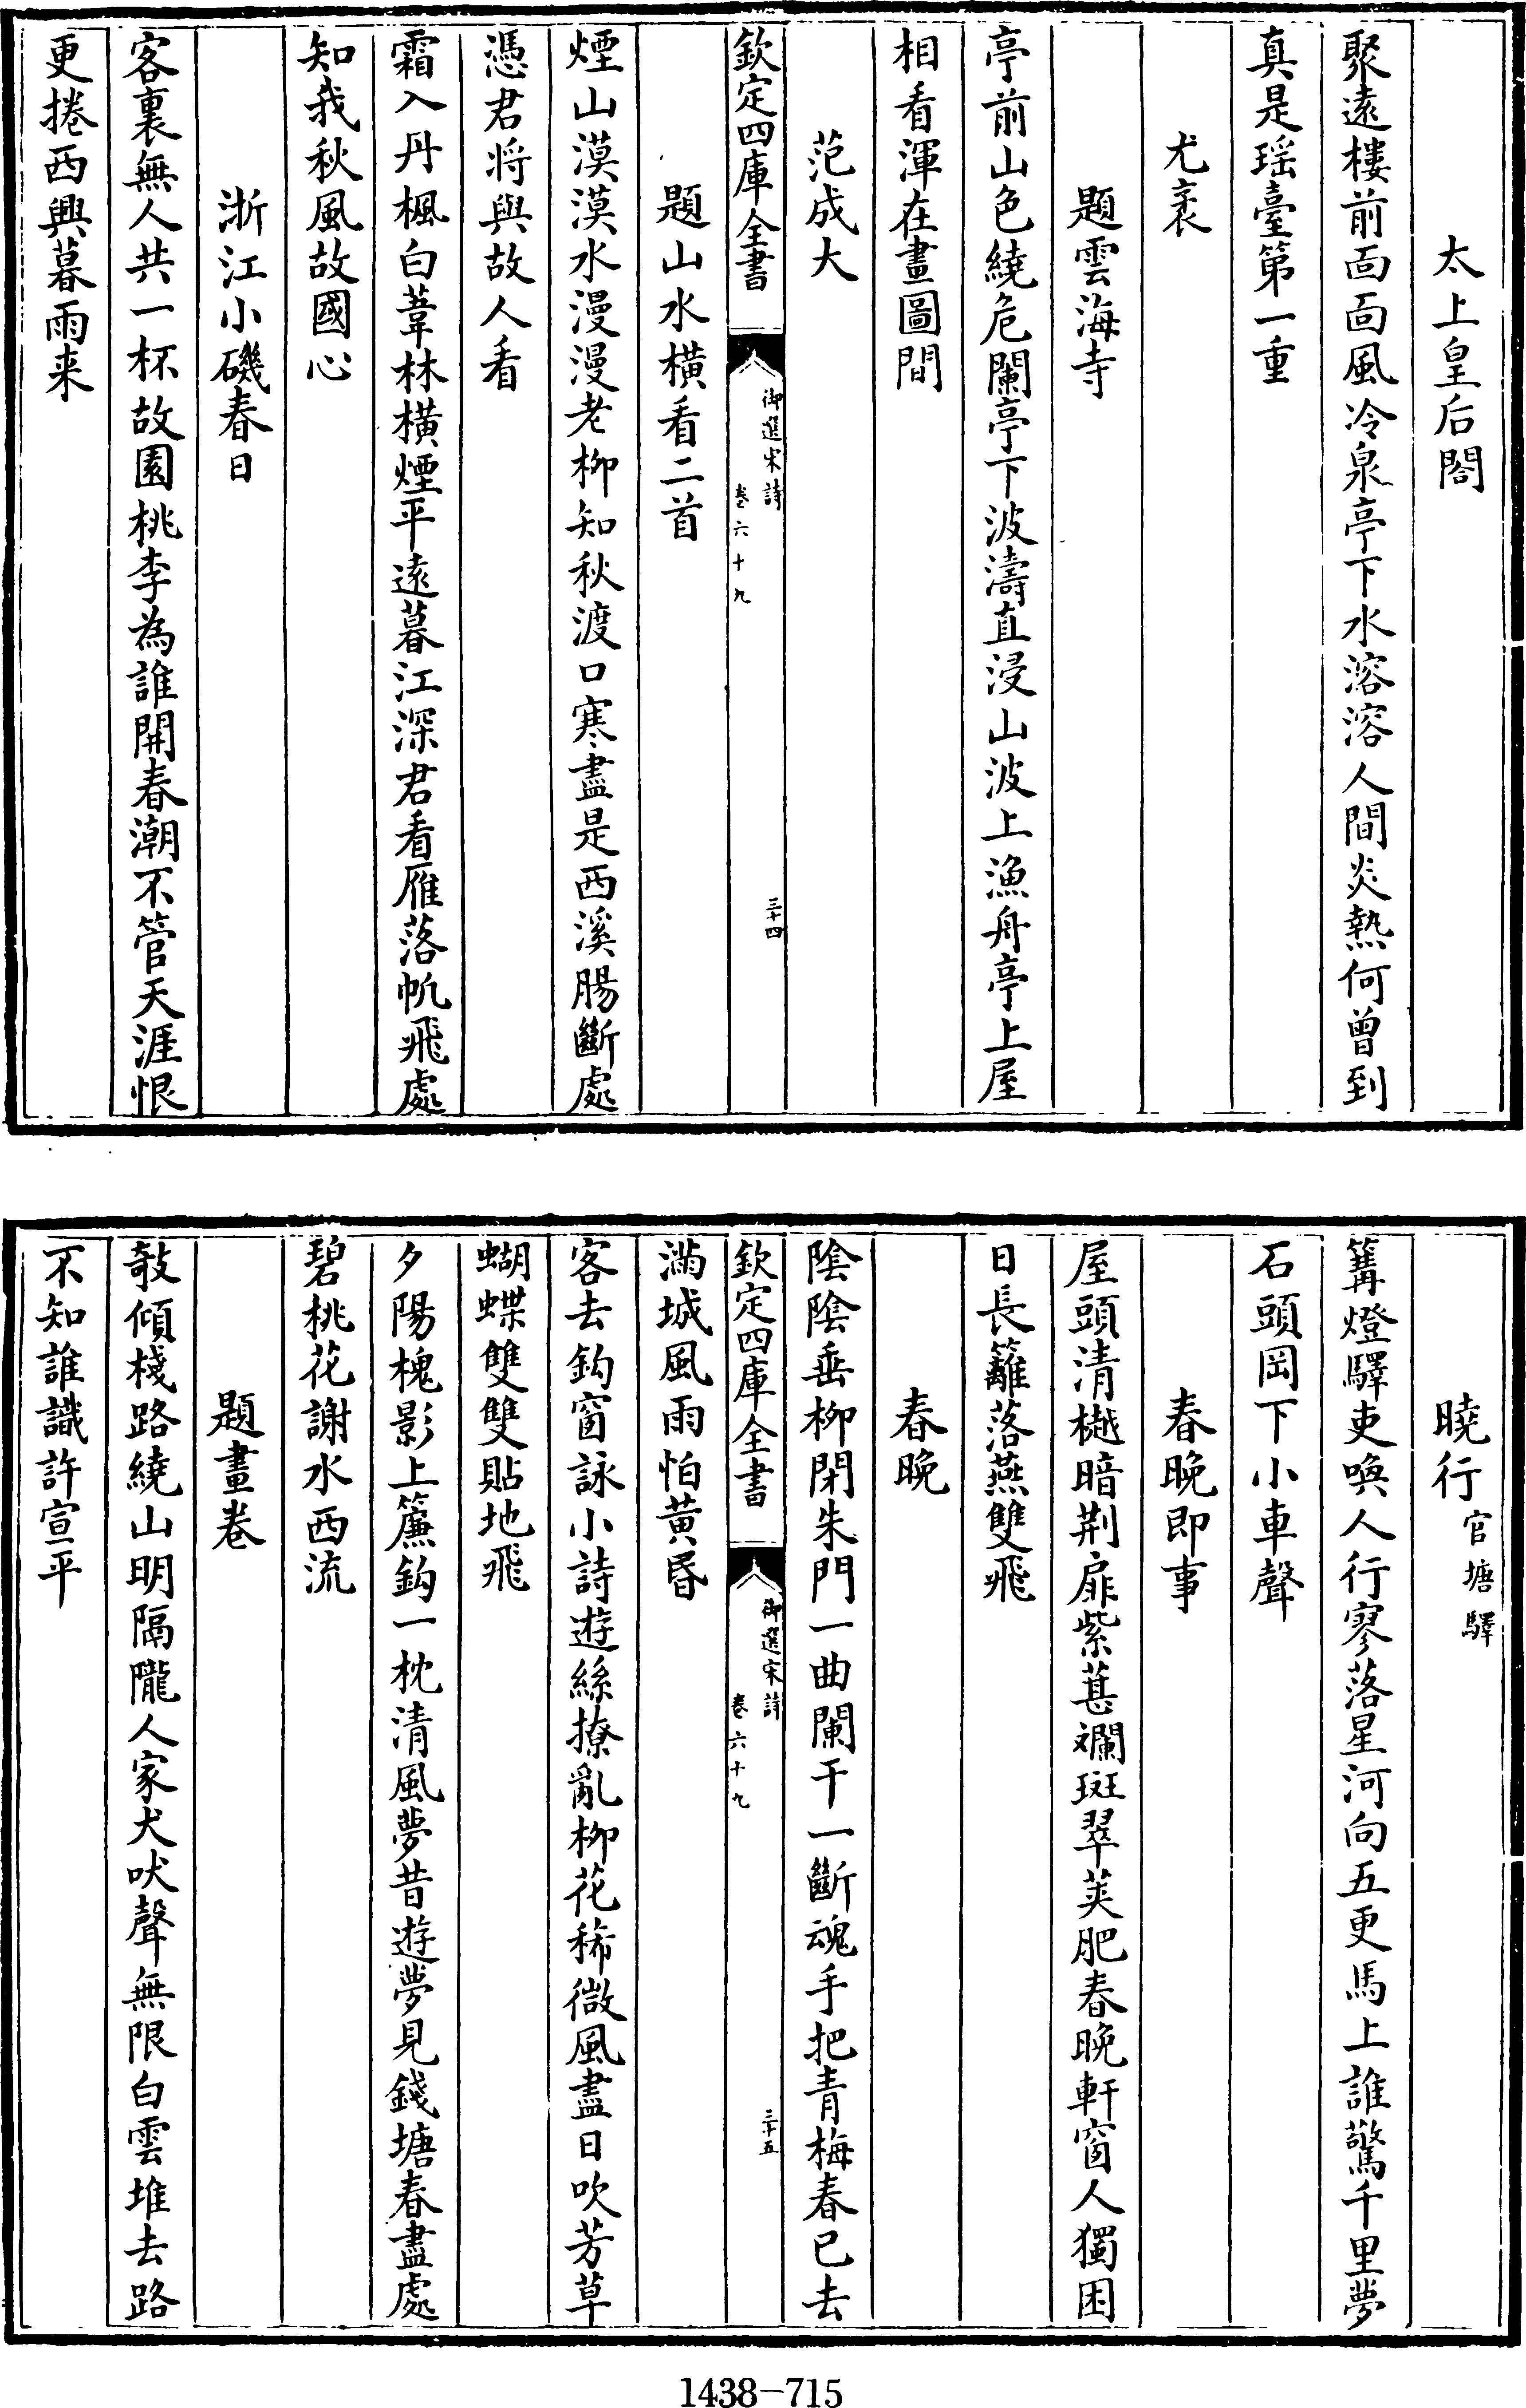 太上皇后閤
聚遠樓前面面風冷泉亭下水溶溶人間炎熱何曾到
真是瑶臺第一重
尤袤
題雲海寺
亭前山色繞危闌亭下波濤直浸山波上漁舟亭上屋
相看渾在畫圖間
范成大
欽定四庫全書
御選宋詩
卷六十九
三十四
題山水橫看二首
煙山漠漠水漫漫老柳知秋渡口寒盡是西溪腸斷處
憑君將與故人看
霜入丹楓白葦林橫煙平遠暮江深君看雁落帆飛處
知我秋風故國心
浙江小磯春日
客裏無人共一杯故園桃李為誰開春潮不管天涯恨
更捲西興暮雨来
曉行官塘驛
篝燈驛吏喚人行寥落星河向五更馬上誰驚千里夢
石頭岡下小車聲
春晚即事
屋頭清樾暗荆扉紫葚斕斑翠莢肥春晚軒窗人獨困
日長籬落燕雙飛
春晚
陰陰垂柳閉朱門一曲闌干一斷魂手把青梅春已去
滿城風雨怕黃昬
欽定四庫全書
御選宋詩
卷六十九
三十五
客去鈎窗詠小詩遊絲撩亂柳花稀微風盡日吹芳草
蝴蝶雙雙貼地飛
夕陽槐影上簾鈎一枕清風夢昔遊夢見錢塘春盡處
碧桃花謝水西流
題畫卷
攲傾棧路繞山明隔隴人家犬吠聲無限白雲堆去路
不知誰識許宣平
1438-715